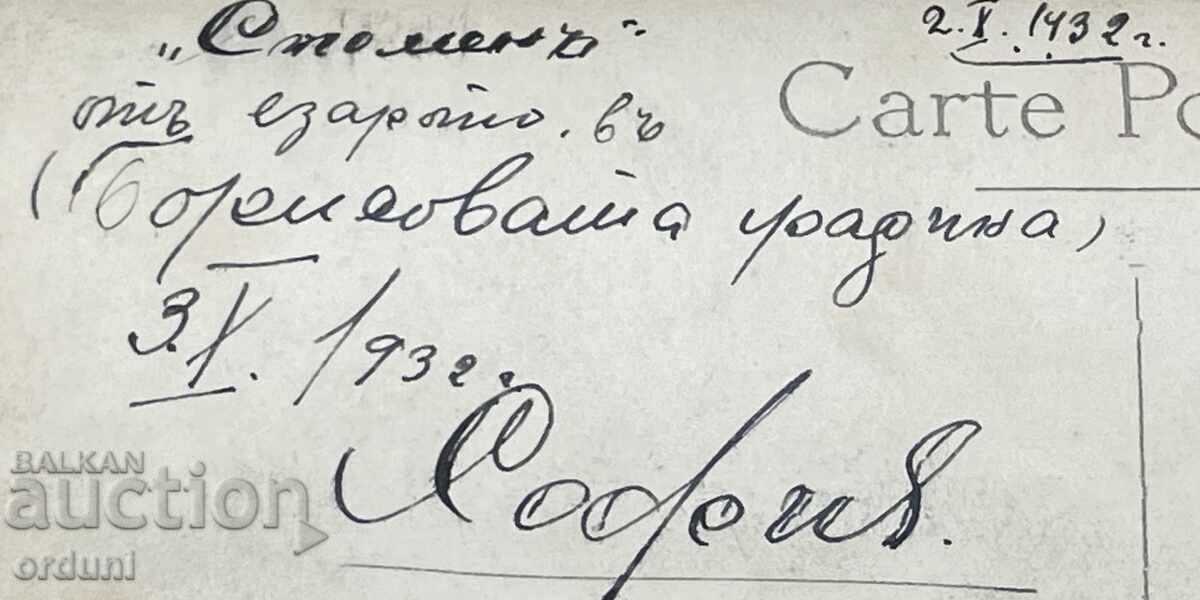 2.X.1932г.
„Споменъ"
отъ езарото. въ
Carte Po
(Борисовата градина)
3.X. 1932г.
София.
BALKAN
auction
orduni